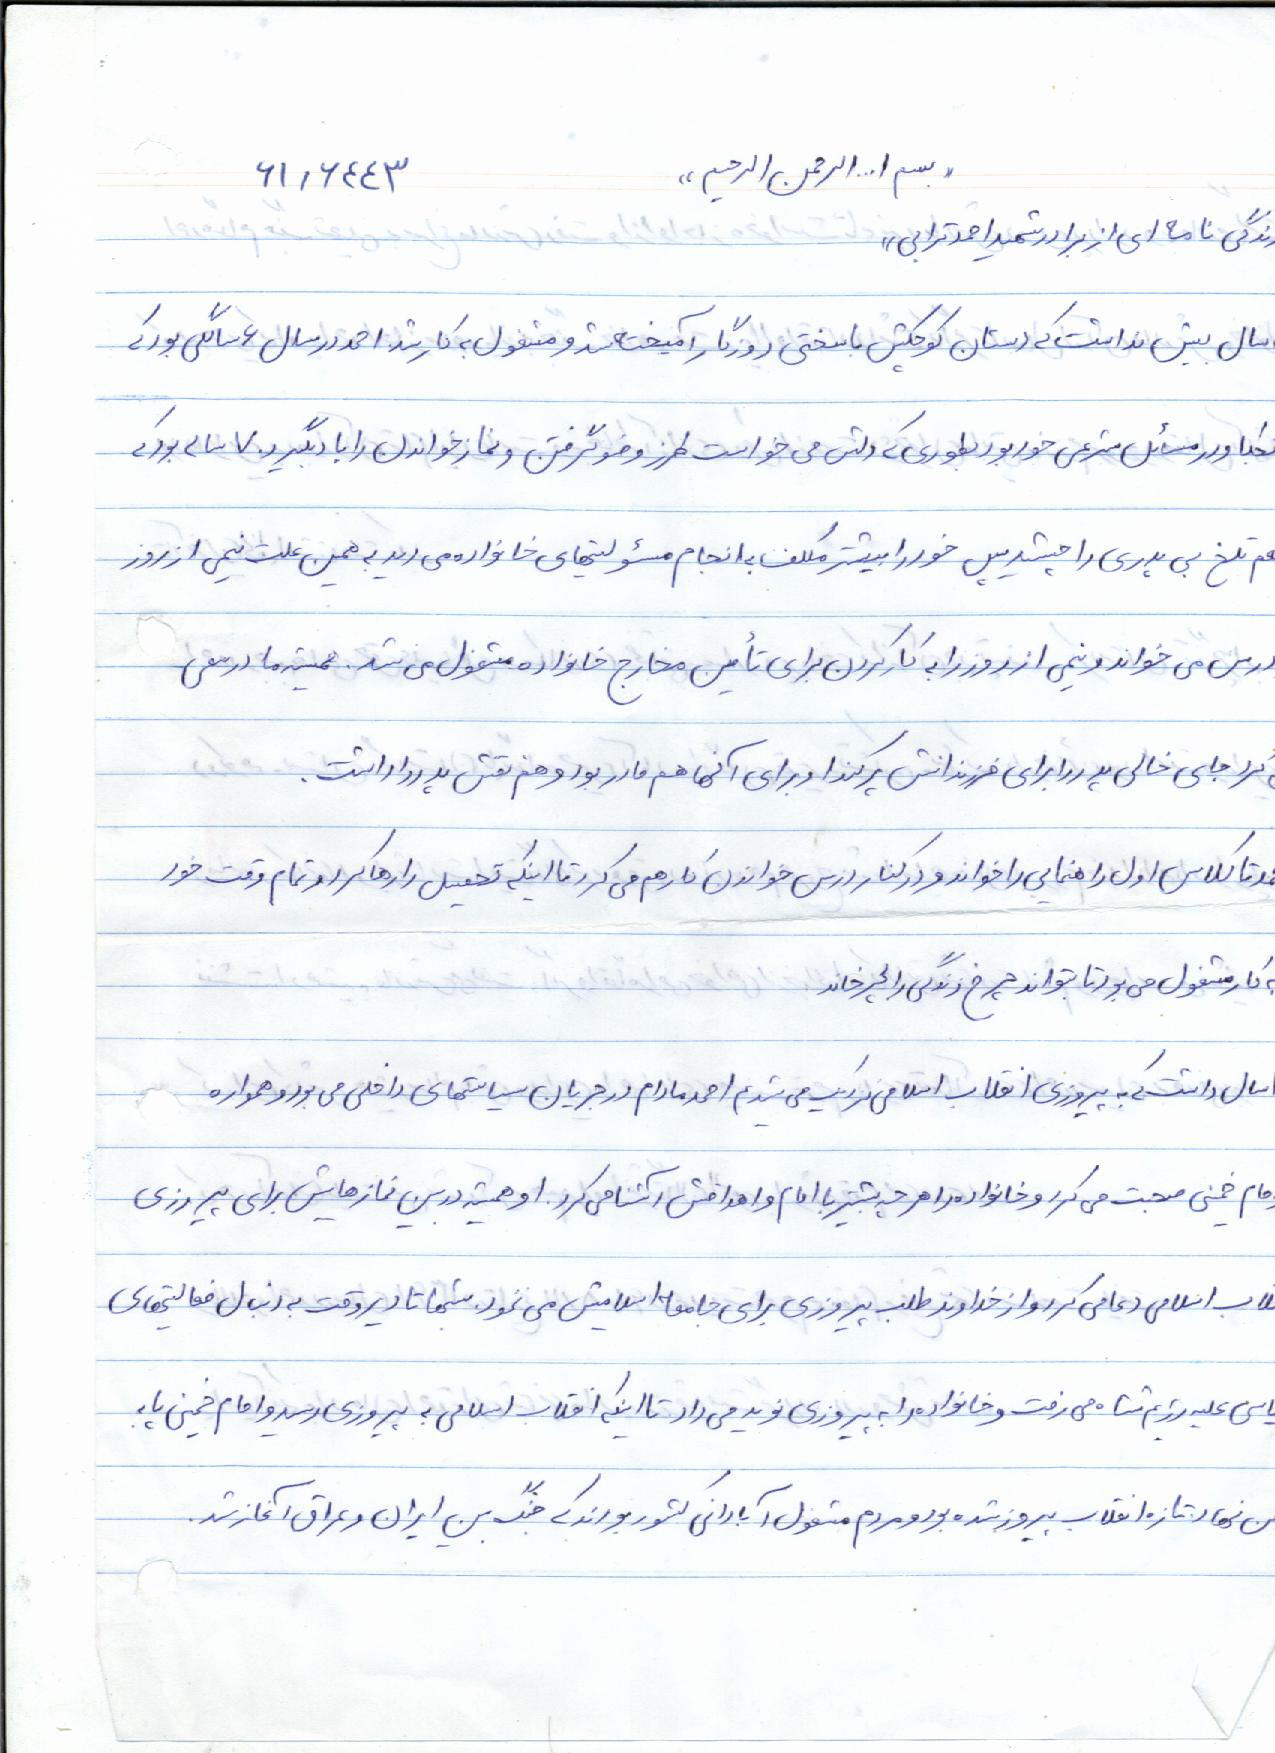 «بسم ا...الرحمن الرحیم» ۶۱/۶۴۴۳
زندگی نامه ای از برادر شهید احمد ترابی»
سال بیش نداشت که دستان کوچکش با سختی روزگار آمیخته شد و مشغول به کار شد. احمد در سال ۶ سالگی بود که
در مسائل شرعی خود بود بطوری که دلش می خواست طرز وضو گرفتن و نماز خواندن را یاد بگیرد. ۷ ساله بود که
تلخ بی پدری را چشید پس خود را بیشتر مکلف به انجام مسئولیتهای خانواده می دید به همین علت نیمی از روز
درس می خواند و نیمی از روز را به کار کردن برای تأمین مخارج خانواده مشغول می شد. همیشه مادر سعی
جای خالی پدر را برای فرزندانش پر کند او برای آنها هم مادر بود و هم نقش پدر را داشت.
تا کلاس اول راهنمایی را خواند و در کنار درس خواندن کار هم می کرد تا اینکه تحصیل را رها کرد و تمام وقت خود
به کار مشغول می بود تا بتواند چرخ زندگی را بچرخاند
سال داشت که به پیروزی انقلاب اسلامی نزدیک می شدیم احمد مادام در جریان سیاستهای داخلی می بود و همواره
امام خمینی صحبت می کرد و خانواده را هر چه بیشتر با امام و اهدافش آشنا می کرد. او همیشه در بین نمازهایش برای پیروزی
انقلاب اسلامی دعا می کرد و از خداوند طلب پیروزی برای جامعه اسلامیش می نمود. شبها تا دیر وقت به دنبال فعالیتهای
سیاسی علیه رژیم شاه می رفت و خانواده را به پیروزی نوید می داد تا اینکه انقلاب اسلامی به پیروزی رسید و امام خمینی پا به
نهاد. تازه انقلاب پیروز شده بود و مردم مشغول آبادانی کشور بودند که جنگ بین ایران و عراق آغاز شد.